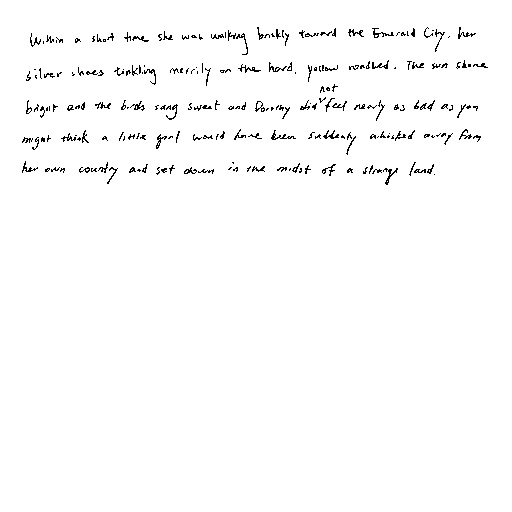 Within a short time she was walking briskly toward the Emerald City, her
silver shoes tinkling merrily on the hard, yellow roadbed. The sun shone
bright and the birds sang sweet and Dorothy did not feel nearly as bad as you
might think a little girl would have been suddenly whisked away from
her own country and set down in the midst of a strange land.